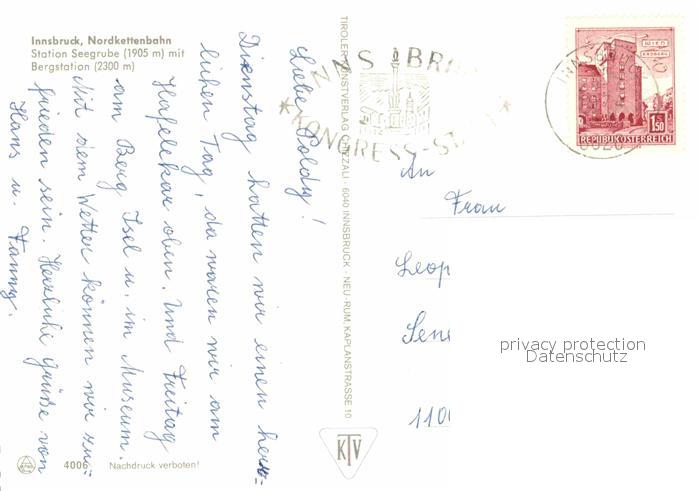 Innsbruck, Nordkettenbahn
Station Seegrube (1905 m) mit
Bergstation (2300 m)
Liebe Poldy!
Dienstag hatten wir einen herr=
lichen Tag, da waren wir am
Hafelekar oben. Und Freitag
am Berg Isel u. im Museum.
Mit dem Wetter können wir zu=
frieden sein. Herzliche Grüße von
Hans u. Fanny.
4006
Nachdruck verboten!
TIROLER KUNSTVERLAG CHIZZALI · 6040 INNSBRUCK - NEU-RUM, KAPLANSTRASSE 10
KTV
INNSBRUCK
*KONGRESS-STADT*
WIEN
ERDBERG
S
1.50
REPUBLIK ÖSTERREICH
An
Frau
Leop
Sen
110
privacy protection
Datenschutz